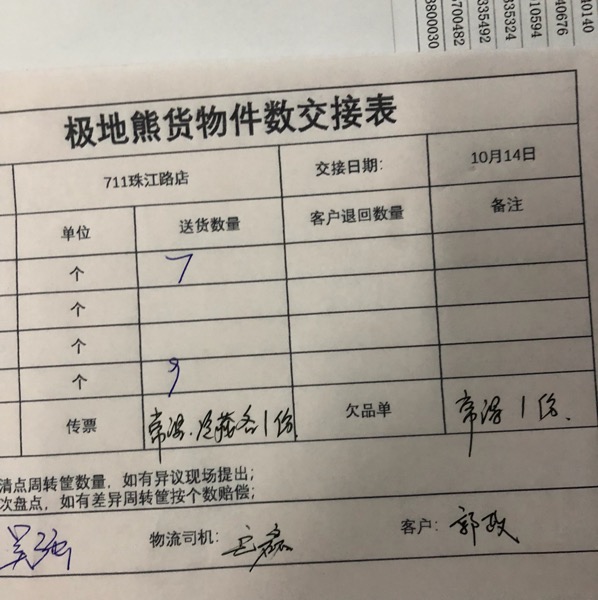 40140
40676
10594
335324
335492
700482
8800030
极地熊货物件数交接表
711珠江路店 交接日期: 10月14日
单位 送货数量 客户退回数量 备注
个 7
个
个
个 9
传票 常温.冷藏各1份. 欠品单 常温1份.
清点周转筐数量，如有异议现场提出；
次盘点，如有差异周转筐按个数赔偿；
物流司机: 客户: